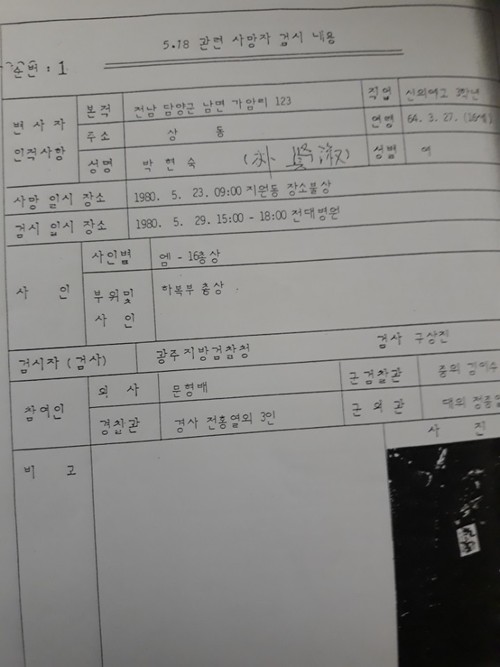 5.18 관련 사망자 검시 내용
순번 : 1
변 사 자
인적사항
본적 전남 담양군 남면 가암리 123
직업 신의여고 3학년
주소 상 동
연령 64. 3. 27. (16세)
성명 박 현 숙 (朴 賢 淑)
성별 여
사망 일시 장소 1980. 5. 23. 09:00 지원동 장소불상
검시 일시 장소 1980. 5. 29. 15:00 - 18:00 전대병원
사 인
사인별 엠 - 16총상
부위및
사 인
하복부 총상
검시자 (검사) 광주지방검찰청 검사 구상진
참여인
의 사 문형배
군검찰관 중위 김이수
경찰관 경사 전홍열외 3인
군 의 관 대위
비 고
사 진